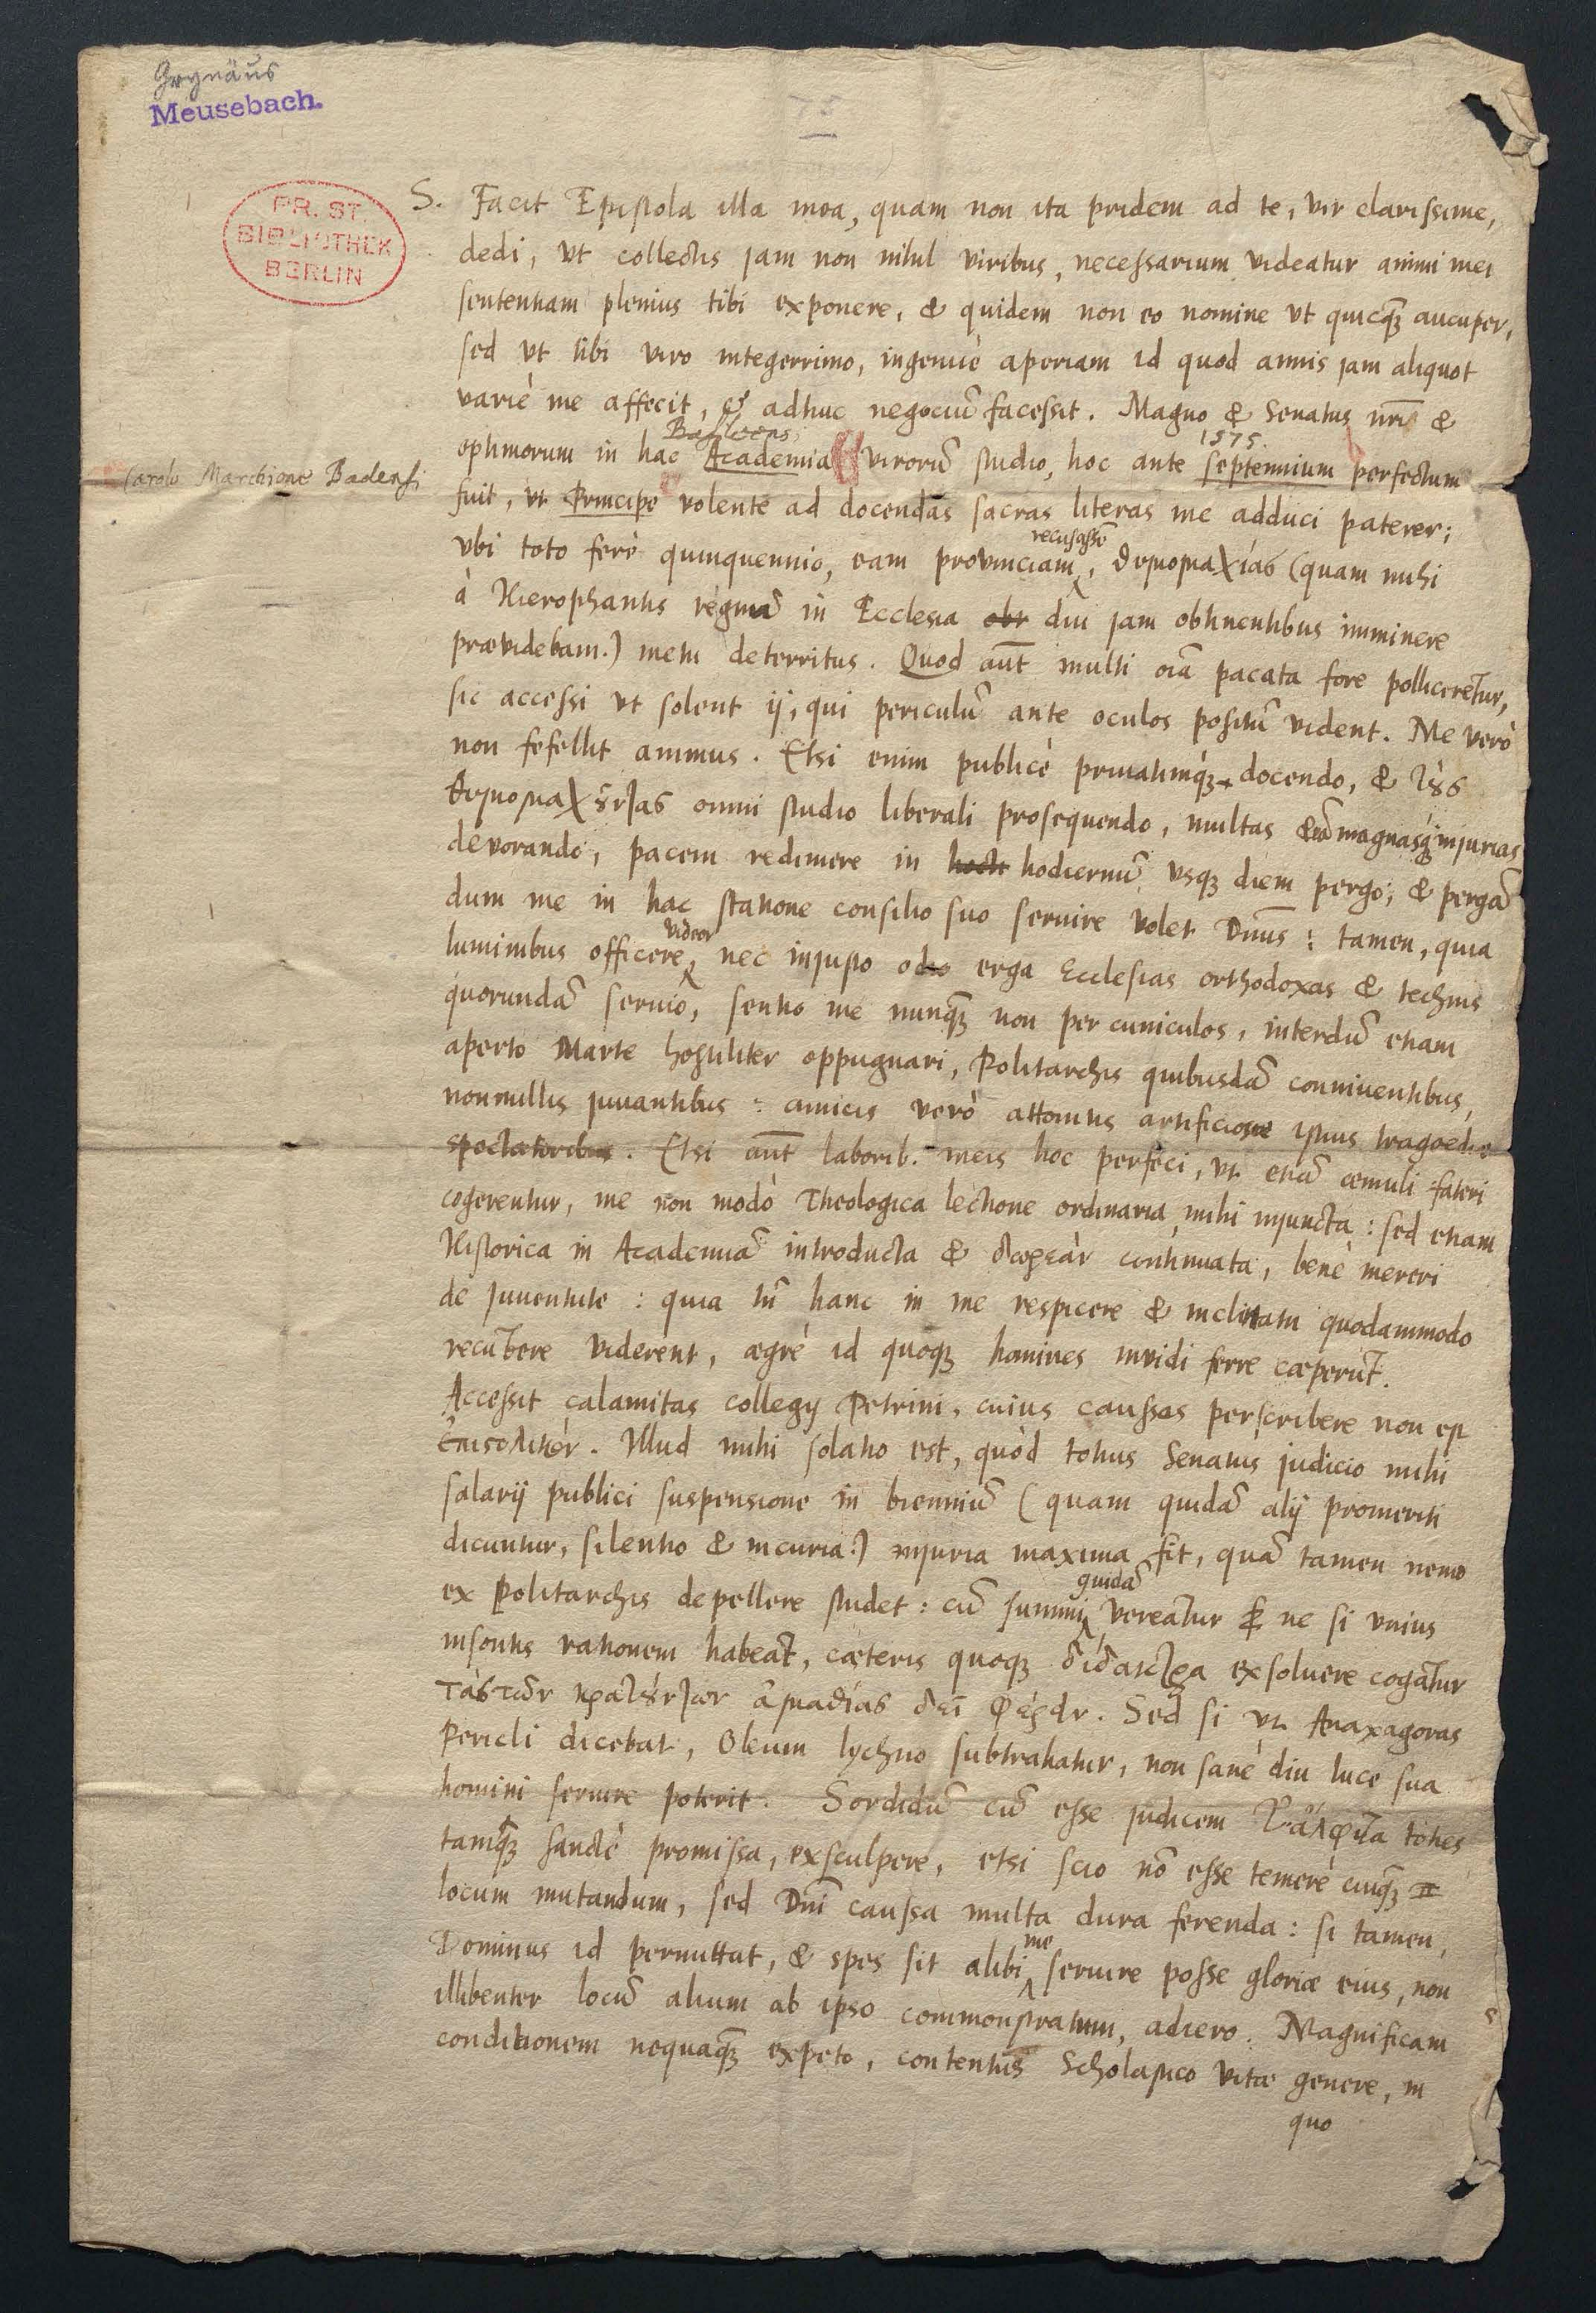 Grynäus
Meusebach.
PR. ST.
BIBLIOTHEK
BERLIN
S. Facit Epistola illa mea, quam non ita pridem ad te, vir clarissime,
dedi, vt collectis jam non nihil viribus, necessarium videatur animi mei
sententiam plenius tibi exponere, & quidem non eo nomine vt quicq̃ aucuper,
sed vt tibi viro integerrimo, ingenuè aperiam id quod annis jam aliquot
variè me affecit, & adhuc negociũ facessit. Magno & Senatus nr̃i &
Basileens. 1575.
optimorum in hac Academia virorũ studio, hoc ante septennium perfectum
Carolo Marchione Badensi
fuit, vt Principe volente ad docendas sacras literas me adduci paterer;
vbi toto ferè quinquennio, eam provinciam recusassẽ, θυμομαχίας (quam mihi
à Hierophantis regnũ in Ecclesia obt diu jam obtinentibus imminere
prævidebam.) metu deterritus. Quod aũt multi oĩa pacata fore pollicerẽtur,
sic accessi vt solent ij, qui periculũ ante oculos positũ vident. Me verò
non fefellit animus. Etsi enim publicè privatimq́ docendo, & τοὺς
θυμομαχοῦντας omni studio liberali prosequendo, multas magnasq́ injurias
devorando, pacem redimere in hodiernũ vsq́ diem pergo; & pergã
dum me in hac statione consilio suo servire volet Dñus: tamen, quia
luminibus officere videor, nec injusto odio erga Ecclesias orthodoxas & technis
quorundã servio, sentio me nunq̃ non per cuniculos, interdũ etiam
aperto Marte hostiliter oppugnari, Politarchis quibusdã conniventibus,
nonnullis juvantibus: amicis verò attonitis artificiosae istius tragoediæ
spectatoribus. Etsi aũt laborib. meis hoc perfeci, vt etiã æmuli fateri
cogerentur, me non modò Theologica lectione ordinaria mihi injuncta: sed etiam
Historica in Academiã introducta & δωρεὰν continuata, benè mereri
de juventute: quia tñ hanc in me respicere & inclinatã quodammodo
recũbere viderent, ægrè id quoq́ homines invidi ferre cœperũt.
Accessit calamitas collegij Petrini, cuius caussas perscribere non est
ἐπιστολικόν. Illud mihi solatio est, quòd totius Senatus judicio mihi
salarij publici suspensione in bienniũ (quam quidã alij promeriti
dicuntur, silentio & incuria.) injuria maxima fit, quã tamen nemo
ex Politarchis depellere studet: cũ summi quidã vereãtur ne si vnius
insontis rationem habeãt, cæteris quoq́ δίδακτρα exsoluere cogãtur
τὰς τῶν κρατούντων ἀμαθίας δεῖ φέρειν. Sed si vt Anaxagoras
Pericli dicebat, Oleum lychno subtrahatur, non sanè diu luce sua
homini servire poterit. Sordidũ cũ esse judicem τὰ ἄλφιτα toties
tamq́ sanctè promissa, exsculpere, etsi scio nõ esse temerè cuiq̃
locum mutandum, sed Dñi caussa multa dura ferenda: si tamen,
Dominus id permittat, & spes sit alibi me servire posse gloriæ eius, non
illibenter locũ alium ab ipso commonstratum, adiero. Magnificam
conditionem nequaq̃ expeto, contentus Scholastico vitæ genere, in
quo